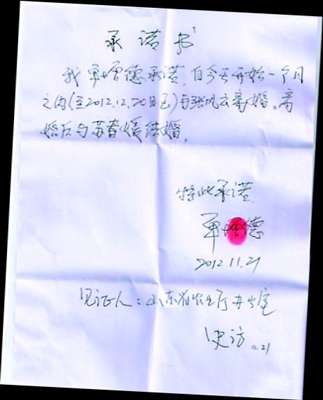 承诺书
我单增德承诺，自今天开始一个月
之内(至2012.12.20日已)与张凤云离婚。离
婚后与苏春媛结婚。
特此承诺
单增德
2012.11.21
见证人：山东省农业厅办公室
史访
11.21